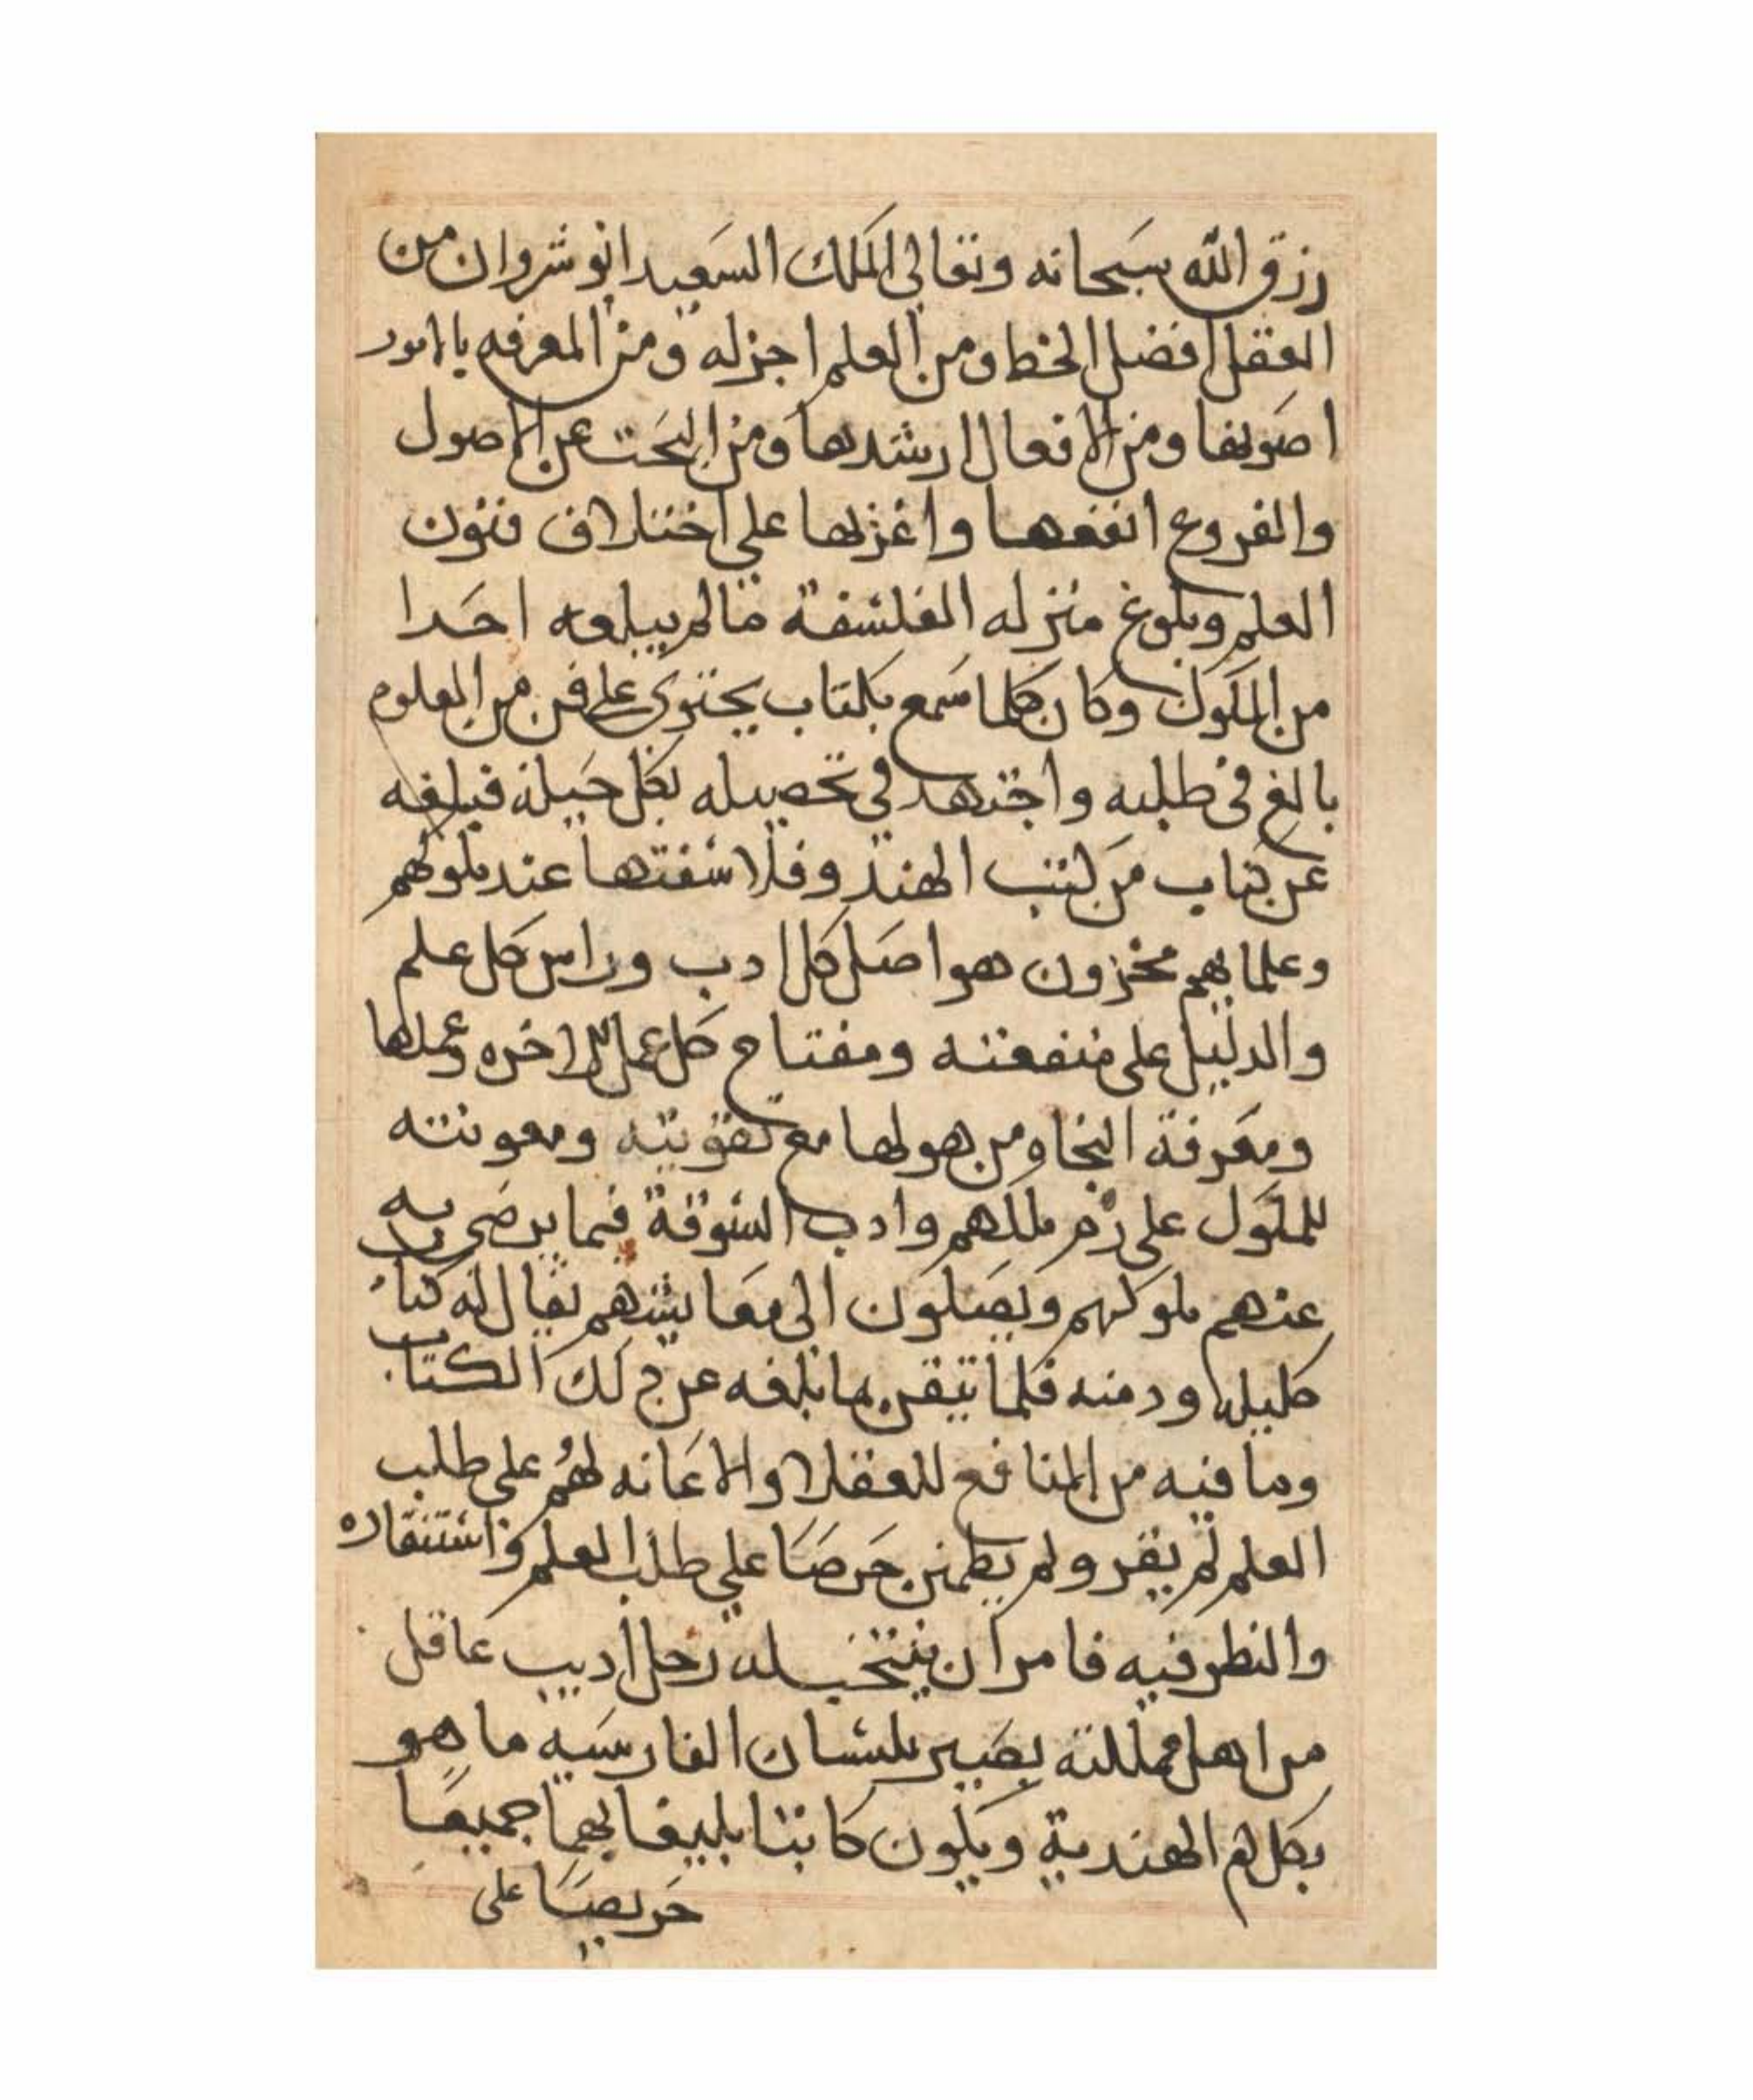 رزق الله سبحانه وتعالى الملك السعيد انوشروان من
العقل افضل الحظ ومن العلم اجزله ومن المعرفه بالامور
اصوبها ومن الافعال ارشدها ومن البحث عن الاصول
والفروع انفعها واغزلها علي اختلاف فنون
العلم وبلوغ منزله الفلسفة مالم يبلغه احدا
من الملوك وكان كلما سمع بكتاب يحتوي علي فن من العلوم
بالغ في طلبه واجتهد في تحصيله بكل حيلة فبلغه
عن كتاب من كتب الهند وفلاسفتها عند ملوكهم
وعلمايهم مخزون هو اصل كل ادب وراس كل علم
والدليل على منفعته ومفتاح كل عمل للاخره وعملها
ومعرفة النجاه من هولها مع تقويته ومعونته
للملوك على زم ملكهم وادب السوقة فيما يرضى به
عنهم ملوكهم ويصلون الى معايشهم يقال له كتاب
كليله ودمنه فلما تيقن بما بلغه عن ذلك الكتاب
وما فيه من المنافع للعقلا والاعانه لهم على طلب
العلم لم يقر ولم يطمن حرصا علي طلب العلم واستنقاره
والنظر فيه فامر ان ينتخب له رجل اديب عاقل
من اهل مملكته بصير بلسان الفارسيه ماهو
بكلام الهندية ويكون كاتبا بليغا بهما جميعا
حريصا على